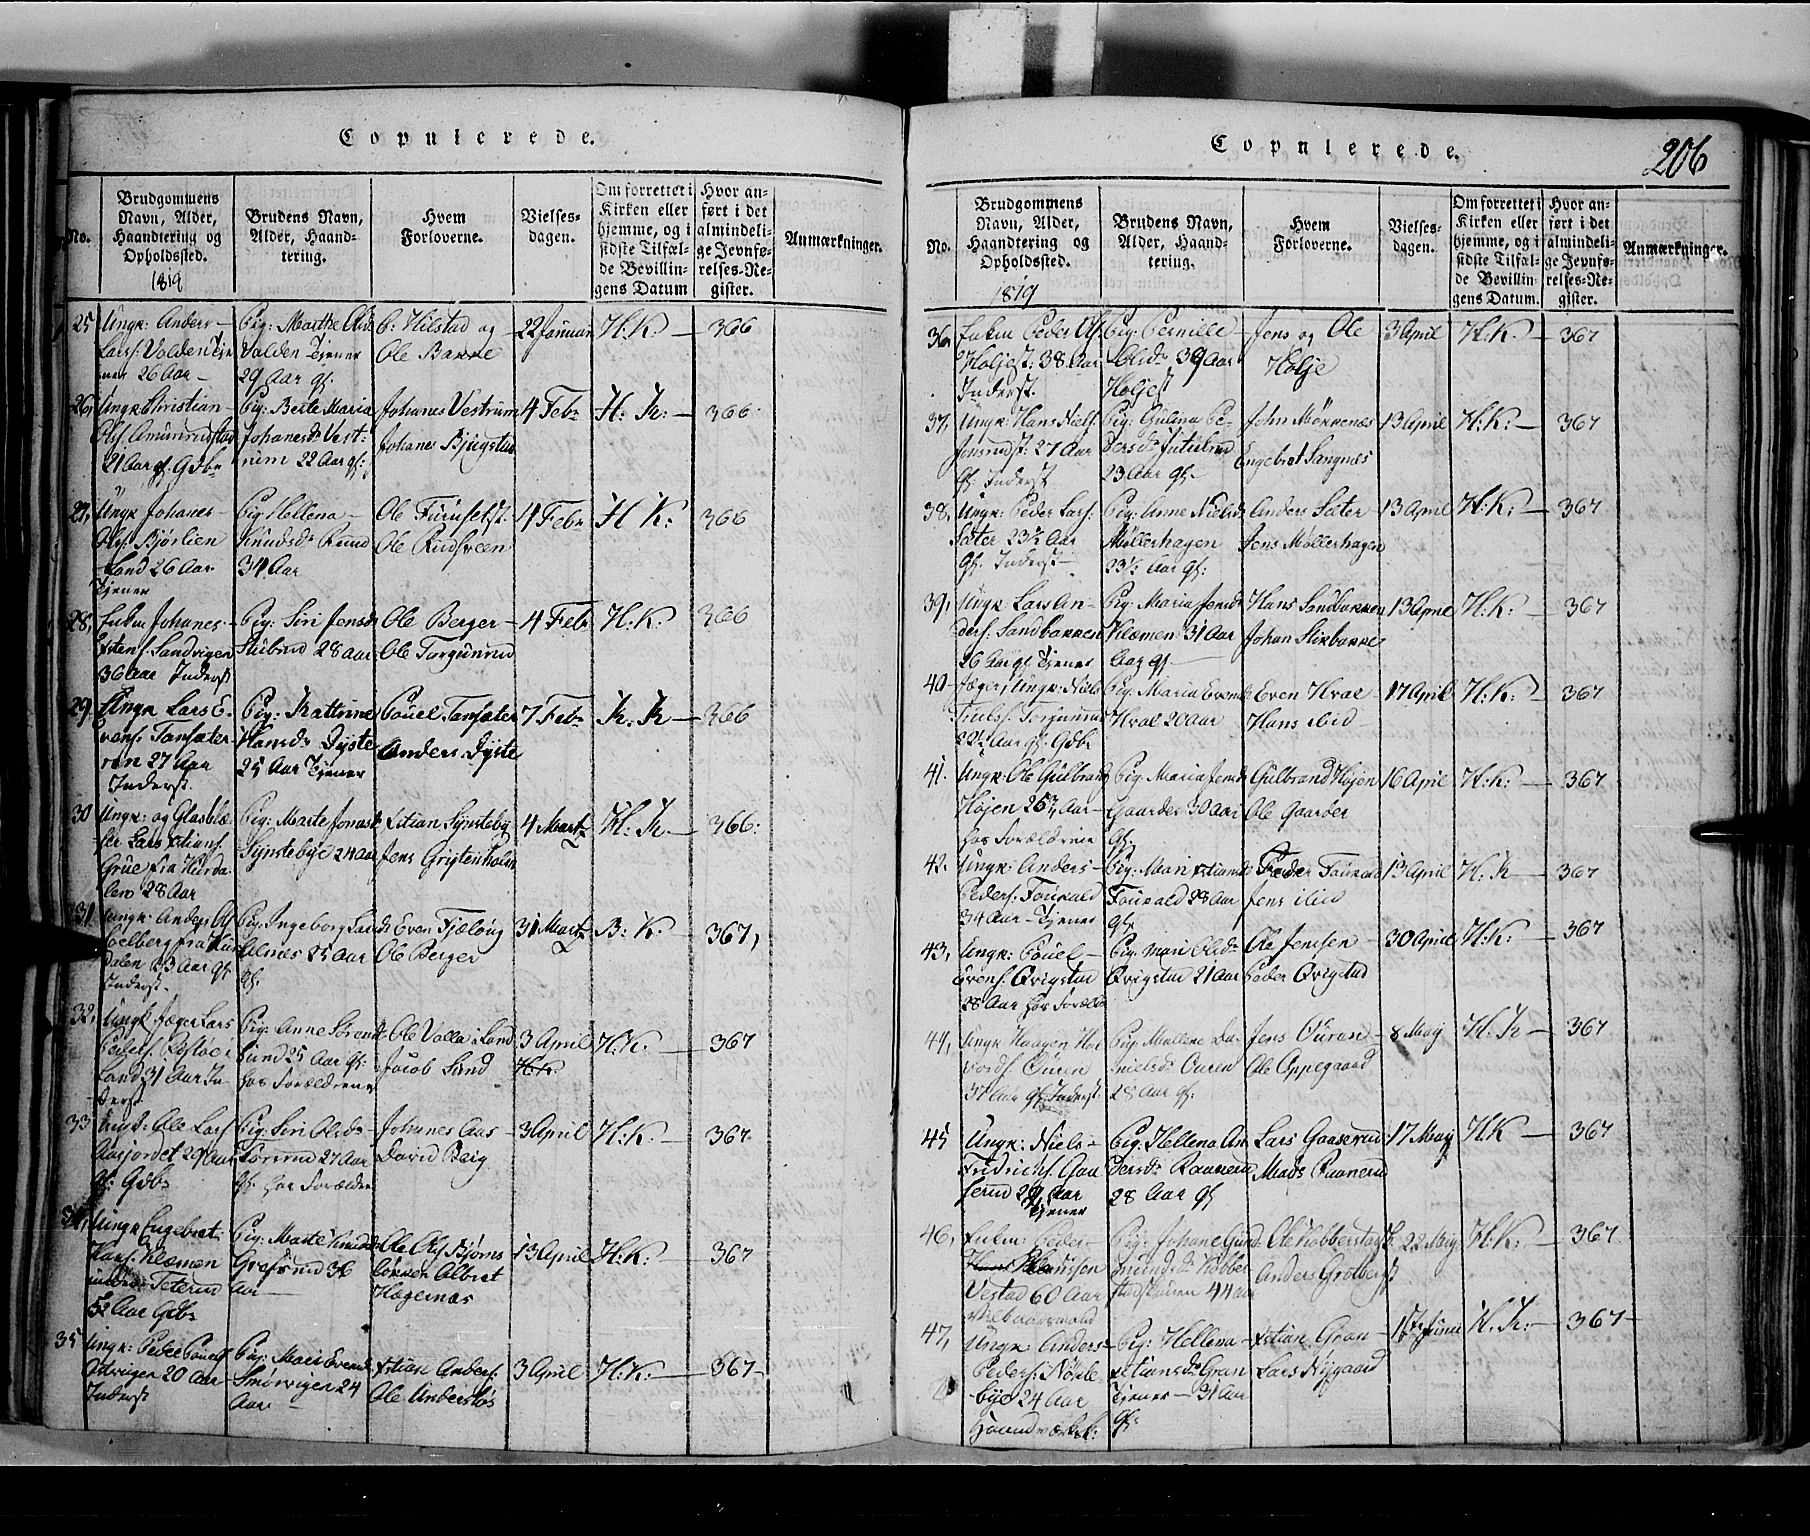 Copulerede.
No.
Brudgommens
Navn, Alder,
Haandtering og
Opholdssted.
1819
Brudens Navn,
Alder, Haand-
tering.
Hvem
Forloverne.
Vielses-
dagen.
Om forrettet i
Kirken eller
hjemme, og i
sidste Tilfæl-
de Bevillin-
gens Datum
Hvor an-
ført i det
almindeli-
ge Jevnfø-
relses-Re-
gister.
Anmærkninger.
25 Ungk: Anders Larss: Volden Tje-
ner 26 Aar
Pig: Marthe
Volden Tjener
29 Aar gf:
Hilstad og
Ole Bakke
22 Januar H:K 366
26, Ungk Christian
Ols: Amunrudstad
21 Aar gf. Gdbr
Pig: Berte Maria
Johanesd: Vest-
rum 22 Aar gf:
Johanes Vestrum
Johanes Bjugstad
4 Febr H: K: 366
27, Ungk Johanes
Ols: Bjørlien
Land 26 Aar
Tjener
Pig Hellena
Knudsd: Rund
34 Aar
Ole Furuset
Ole Rudsveen
4 Febr H K: 366
28, Enkm Johanes
Estens: Landvigen
36 Aar Inderst
Pig: Siri Jensd
Stubrud 28 Aar
Ole Berger
Ole Torgunrud
4 Febr H:K: 366
29, Ungk Lars E-
vens: Tansæter-
en 27 Aar
Inderst.
Pig: Kattrine
Hansd: Dyste
25 Aar Tjener
Pouel Tansæter
Anders Dyste
7 Febr K: K 366
30 Ungk: og Glasblæ-
ser Lars xtians:
Grue fra Hurda-
len 28 Aar
Pig: Marte Jonasd
Synstebye 24 Aar
xstian Synsteby
Jens Gristenholm
4 Martz H: K. 366:
31 Ungk: Anders Ols
Solberg fra Hur
dalen 23 Aar gf
Inderst.
Pig: Ingeborg
Alnæs 25 Aar
gf:
Even Fjeløug
Ole Berger
31 Martz B: K. 367,
32, Ungk Jæger Lars
Peders:
Land 31 Aar In-
derst
Pig: Anne
Lund 25 Aar gf:
hos Forældrene
Ole Volla i Land
Jacob Lund
3 April H:K: 367
33 Ungk: Ole Lars
Aasjordet 29 Aar
gf: Gdbr
Pig: Siri Olsd
Sørum 27 Aar
gf: hos Forældre
Johanes Aas
David Berg
3 April H:K. 367.
34, Ungk Engebret
Hans: Klæmen
Teterud
52 Aar Gdbr
Pig: Marte
Grefsrud 36
Aar
Ole Ols Bjørns
Albret
Hagernæs
13 April H:K: 367
35 Ungk: Peder Pouels
Odvigen 20 Aar
Inderst
Pig: Mari Evensd
Smørvigen 24
Aar
xstian Anders:
Ole
3 April H:K: 367
Copulerede.
206
No.
Brudgommens
Navn, Alder,
Haandtering og
Opholdssted.
1819
Brudens Navn,
Alder, Haand-
tering.
Hvem
Forloverne.
Vielses-
dagen.
Om forrettet i
Kirken eller
hjemme, og i
sidste Tilfæl-
de Bevillin-
gens Datum.
Hvor an-
ført i det
almindeli-
ge Jevnfø-
relses-Re-
gister.
Anmærkninger.
36, Enkm Peder Ols
Holjest: 38 Aar
Inderst.
Pig: Pernille
Olsd: 39 Aar
Holjest
Jens og Ole
Holje
3 April H:K. 367
37, Ungk: Hans Niels
Jonsrudst: 27 Aar
gf. Inderst
Pig: Gulena Pe-
dersd: Jutulrud
23 Aar gf.
John Møkkenæs
Engebret Sangnæs
13 April H:K: 367
38, Ungk: Peder Lars:
Sæter 23½ Aar
gf. Inderst
Pig: Anne Nielsd:
Møllerhagen
23½ Aar gf:
Anders Sæter
Jens Møllerhagen
13 April H:K: 367
39, Ungk Lars An-
ders: Sandbakken
26 Aar gf Tjener
Pig: Maria Jensd
Klæmen 31 Aar
Aar gf
Hans Sandbakken
Johan Stixbakke
13 April H:K: 367
40 Jæger Ungk: Niels
Truls: Torgunrud
22½ Aar gf. Gdbr
Pig: Maria Evensd
Hval 20 Aar
Even Hval
Hans ibid
17 April H:K: 367
41. Ungk: Ole Gulbrands
Højen 25¾ Aar
hos Forældrene
Pig: Maria Jensd
Gaarder 30 Aar
gf:
Gulbrand Højen
Ole Gaarder
16 April H:K: 367
42. Ungk: Anders
Peders: Foukald
34 Aar Tjener
Pig: Mari xstiansd
Foukald 28 Aar
gf:
Peder Foukald
Jens ibid
13 April H:K 367
43, Ungk: Pouel
Evens: Qvigstad
28 Aar hos Foræld:
Pig: Mari Olsd:
Qvigstad 21 Aar
Ole Jensen
Peder Qvigstad
30 April H:K: 367
44, Ungk Haagen Hal-
vords: Ouren
37 Aar gf Inderst.
Pig: Mallena Da-
nielsd: Ouren
28 Aar gf:
Jens Ouren
Ole Oppegaard
8 May H:K 367
45 Ungk: Niels
Fridrichs: Gaa
serud 29 Aar
Tjener
Pig: Hellena An
dersd: Raanerud
28 Aar gf
Lars Gaaserud
Mads Raanerud
17 May H:K 367
46, Enkm: Peder
Vestad 60 Aar
Pig: Johane Gund
mundsd: Kobber
stadskaien 44 Aar
Ole Kobberstad
Anders Grøtberg
22 May H:K: 367
47, Ungk: Anders
Peders: Nøkle
bye 24 Aar
Haandværksk:
Pig: Hellena
xstiansd: Gran
Tjener 31 Aar
gf:
xstian Gran
Lars Nygaard
Juni H. K: 367